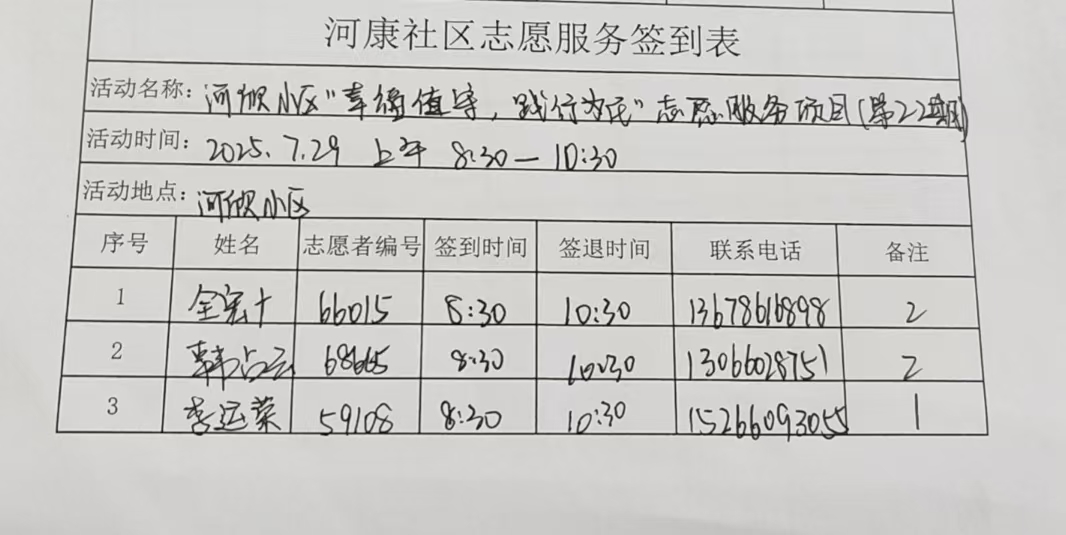 河康社区志愿服务签到表
活动名称：河欣小区"幸福值守，践行为民"志愿服务项目(第22期)
活动时间：2025.7.29 上午 8:30—10:30
活动地点：河欣小区
序号 姓名 志愿者编号 签到时间 签退时间 联系电话 备注
1 66015 8:30 10:30 13678616898 2
2 韩占云 68665 8:30 10:30 13066028751 2
3 李运荣 59108 8:30 10:30 15266093055 1